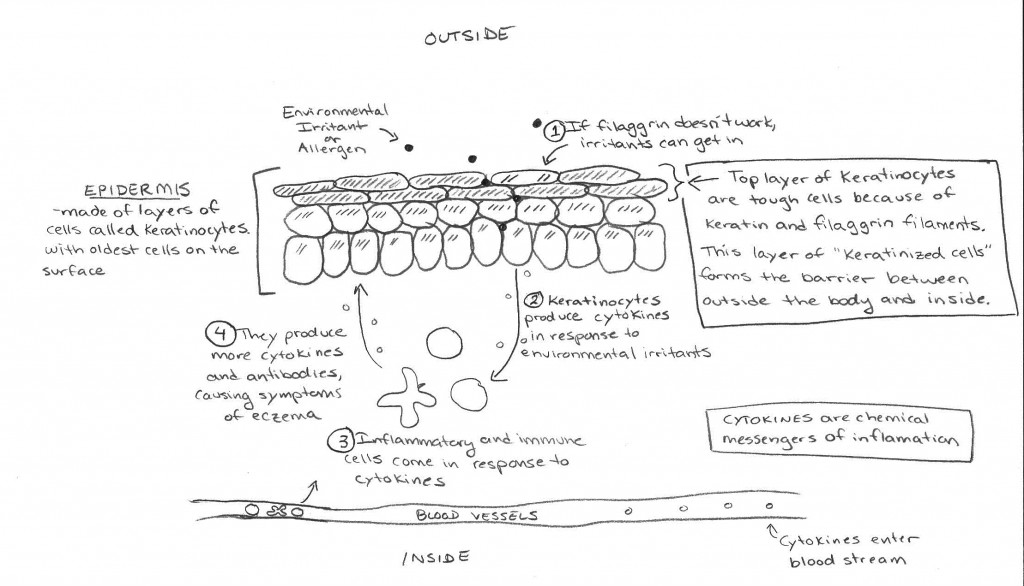 OUTSIDE
Environmental
Irritant
or
Allergen
① If filaggrin doesn't work,
irritants can get in
EPIDERMIS
-made of layers of
cells called Keratinocytes.
with oldest cells on the
surface
Top layer of Keratinocytes
are tough cells because of
Keratin and filaggrin filaments.
This layer of "Keratinized cells"
forms the barrier between
outside the body and inside.
② Keratinocytes
produce cytokines
in response to
environmental irritants
④ They produce
more cytokines
and antibodies,
causing symptoms
of eczema
③ Inflammatory and immune
cells come in response to
cytokines
CYTOKINES are chemical
messengers of inflamation
BLOOD VESSELS
Cytokines enter
blood stream
INSIDE